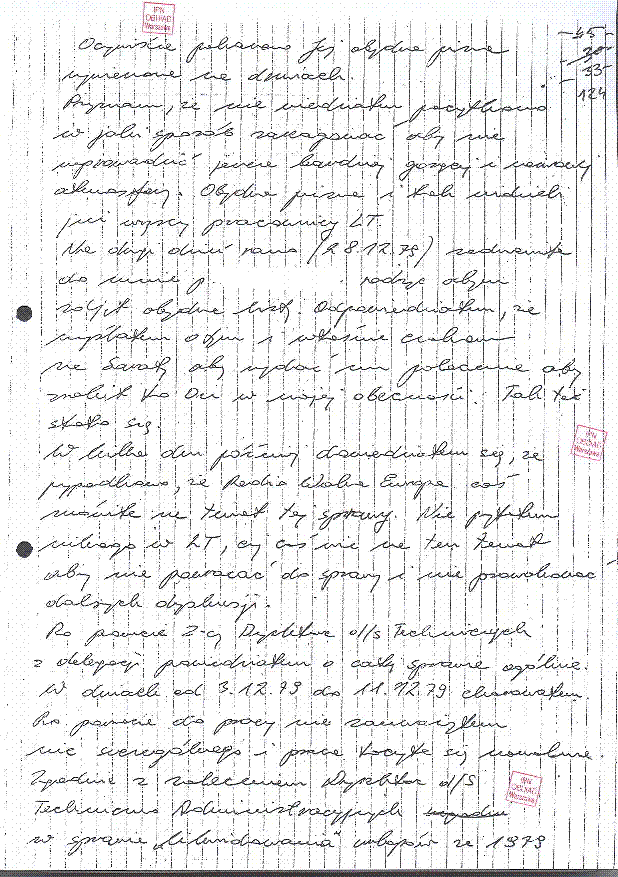 IPN
OBUiAD
Warszawa
- 45 -
- 20 -
- 33 -
124
Oczywiście pokazano Jej obydwa pisma
wywieszone na drzwiach.
Przyznam, że nie wiedziałem początkowo
w jaki sposób zareagować aby nie
wprowadzić jeszcze bardziej gorącej i nerwowej
atmosfery. Obydwa pisma i tak widzieli
już wszyscy pracownicy ŁT.
Na drugi dzień rano (28.12.79)
do mnie p. radząc abym
zdjął obydwie kartki. Odpowiedziałem, że
myślałem o tym i właśnie czekam
na aby wydać mu polecenie aby
zrobił to On w mojej obecności. Tak też
stało się.
W kilka dni później dowiedziałem się, że
podobno, że Radio Wolna Europa coś
mówiło na temat tej sprawy. Nie pytałem
nikogo w ŁT, czy coś wie na ten temat
żeby nie powracać do sprawy i nie prowokować
dalszych dyskusji.
Po powrocie Z-cy Dyrektora d/s Technicznych
z delegacji powiedziałem o całej sprawie ogólnie.
W dniach od 3.12.79 do 11.12.79 chorowałem.
Po powrocie do pracy nie zauważyłem
nic szczególnego i praca toczyła się normalnie.
Zgodnie z zaleceniem Dyrektora d/s
Techniczno Administracyjnych
w sprawie "likwidowania" urlopów za 1979
IPN
OBUiAD
Warszawa
IPN
OBUiAD
Warszawa